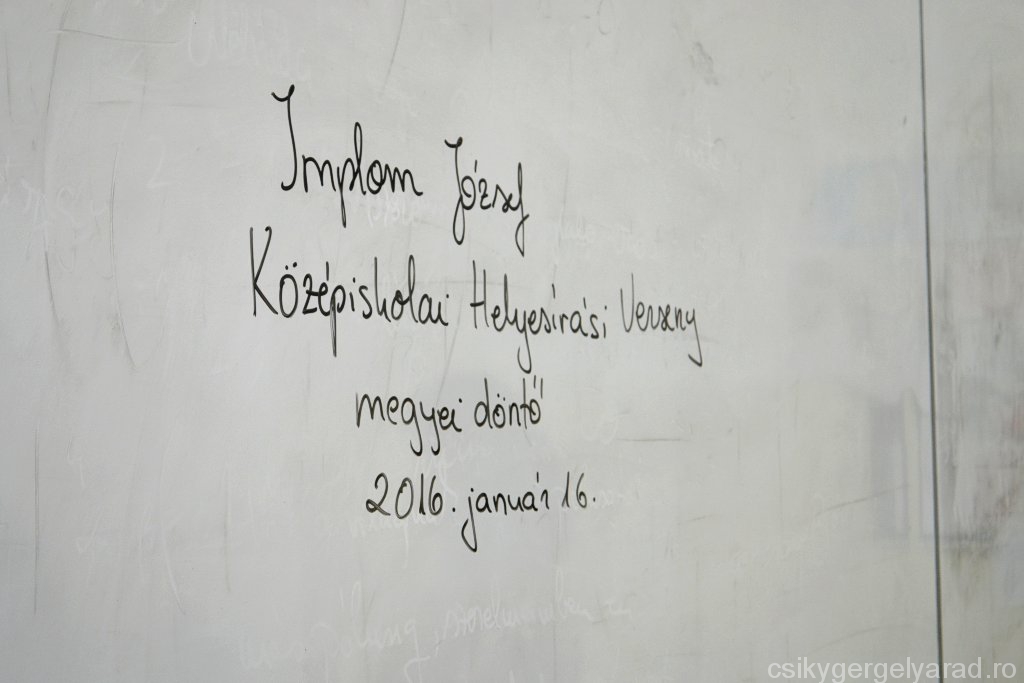 Implom József
Középiskolai Helyesírási Verseny
megyei döntő
2016. január 16.
csikygergelyarad.ro